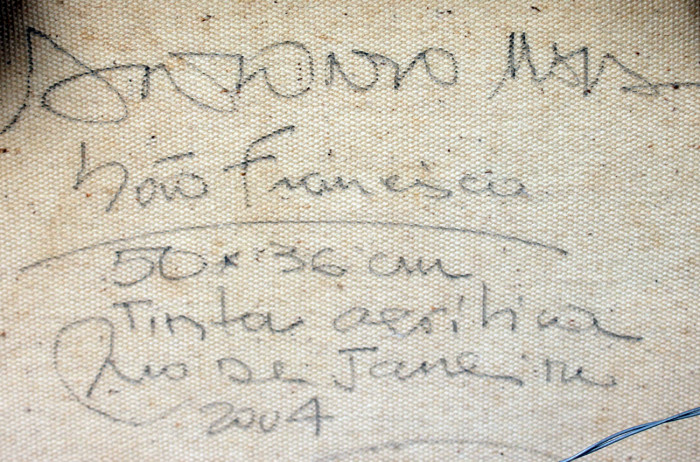 Antonio Maia
São Francisco
50 x 36 cm
Tinta acrílica
Rio de Janeiro
2004